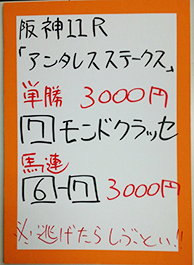 阪神11R
「アンタレスステークス」
単勝 3000円
7 モンドクラッセ
馬連
6-7 3000円
※逃げたらしぶとい!!